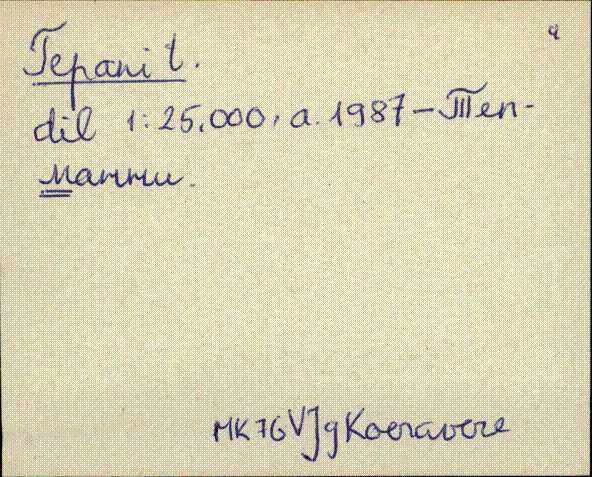 Tepani t.
dil 1:25.000, a. 1987 – Теп-
матти.
MK 76 VJg Koeravere